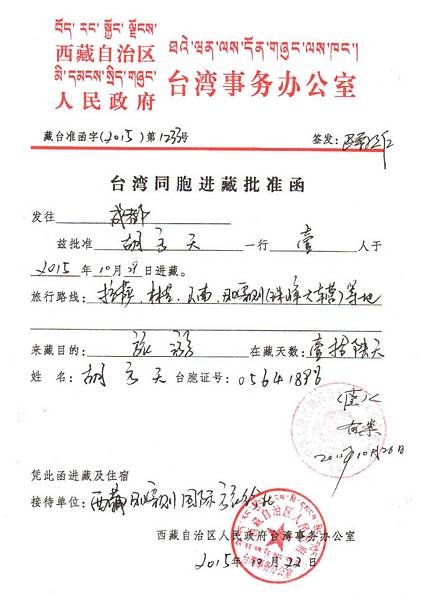 བོད་རང་སྐྱོང་ལྗོངས་
西藏自治区
མི་དམངས་སྲིད་གཞུང་
人民政府
ཐའེ་ཝན་ལས་དོན་གཞུང་ལས་ཁང་།
台湾事务办公室
藏台准函字(2015)第1233号 签发:
台湾同胞进藏批准函
发往 成都
兹批准 胡 天 一行 壹 人于
2015 年 10 月 29 日进藏。
旅行路线: 拉萨、林芝、山南、日喀则(珠峰大本营)等地
来藏目的: 旅游 在藏天数: 壹拾 天
姓 名: 胡 天 台胞证号: 05641898
2015年10月26日
凭此函进藏及住宿
接待单位: 西藏日喀则国际旅行社
西藏自治区人民政府台湾事务办公室
2015年10月22日